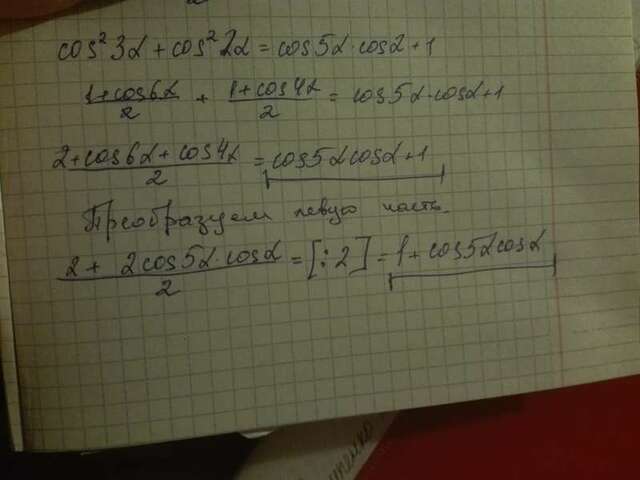 cos² 3α + cos² 2α = cos5α · cosα + 1
1+cos6α/2 + 1+cos4α/2 = cos5α·cosα+1
2+cos6α+cos4α/2 = cos5αcosα+1
Преобразуем левую часть.
2 + 2cos5α·cosα/2 = [:2] = 1+ cos5αcosα